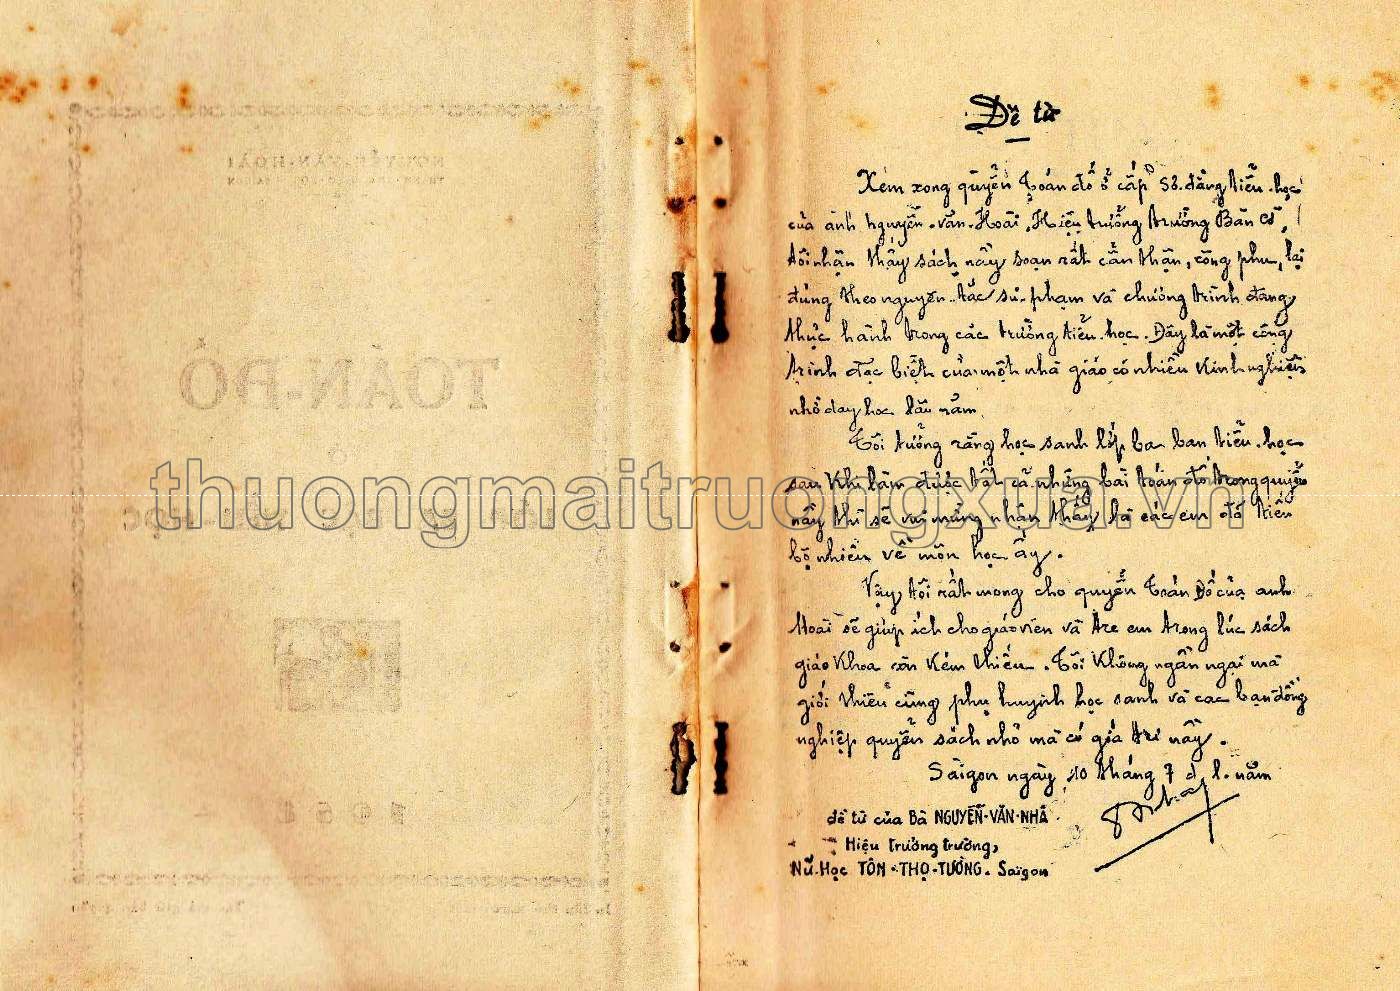 NGUYỄN-VĂN-HOÀI
TOÁN-ĐỐ
Đề từ
Xem xong quyển Toán đố ở cấp Sơ-đẳng tiểu-học
của anh Nguyễn-văn-Hoài, Hiệu trưởng trường Bàn Cờ,
tôi nhận thấy sách nầy soạn rất cẩn thận, công phu, lại
đúng theo nguyên-tắc sư-phạm và chương trình đang
thực hành trong các trường tiểu-học. Đây là một công
trình đặc biệt của một nhà giáo có nhiều kinh nghiệm
nhờ dạy học lâu năm.
Tôi tưởng rằng học sanh lớp ba ban tiểu-học
sau khi làm được tất cả những bài toán đố trong quyển
nầy thì sẽ vui mừng nhận thấy là các em đã tiến
bộ nhiều về môn học ấy.
Vậy tôi rất mong cho quyển Toán Đố của anh
Hoài sẽ giúp ích cho giáo viên và trẻ em trong lúc sách
giáo khoa còn kém thiếu. Tôi không ngần ngại mà
giới thiệu cùng phụ huynh học sanh và các bạn đồng
nghiệp quyển sách nhỏ mà có giá trị nầy.
Sàigon ngày 10 tháng 7 d.l. năm
đề từ của Bà NGUYỄN-VĂN-NHÃ
Hiệu trưởng trường,
Nữ-Học TÔN-THỌ-TƯỜNG. Saigon
thuongmaitruongxua.vn